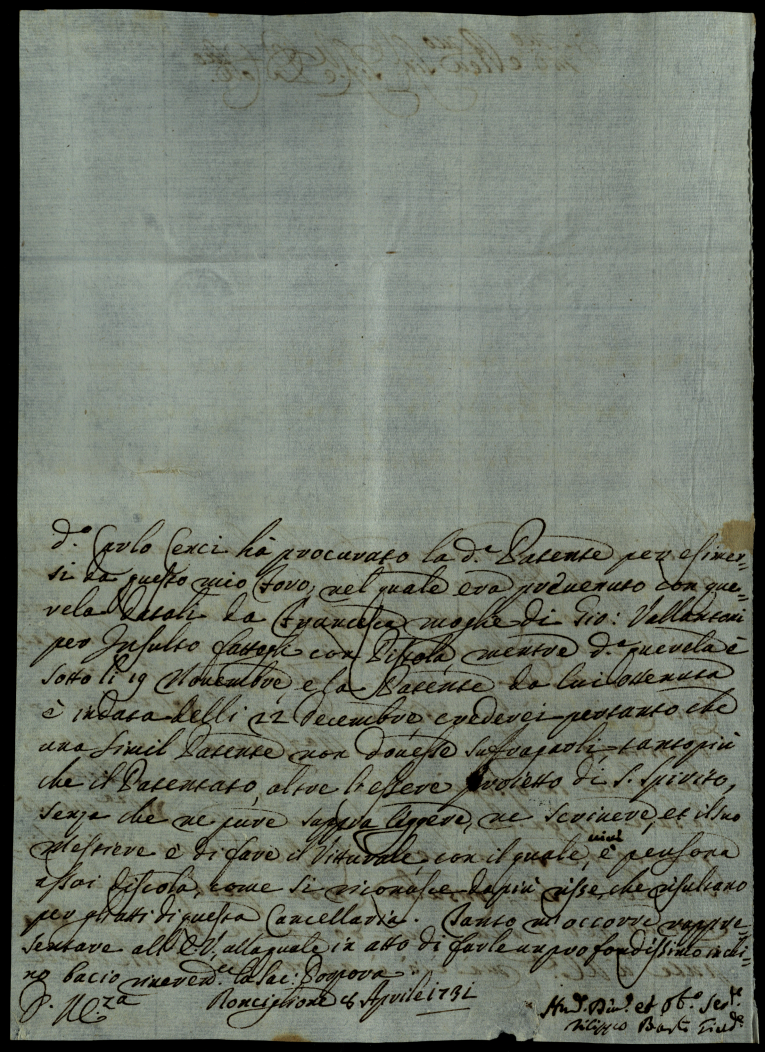 d.º Carlo Cenci hà procurato la d.ª Patente per esimer=
si da questo mio Foro, nel quale era prevenuto con que=
rela datali da Francesca moglie di Gio: Vallantoni
per Insulto fattogli con Pistola, mentre d.ª querela è
sotto li 19 Novembre, e la Patente da lui ottenuta
è in data delli 22 Decembre, crederei pertanto che
una simil Patente non dovesse suffragarli, tanto più
che il Patentato, altre l'essere Proietto di S. Spirito,
senza che ne pure sappia leggere, ne scrivere, et il suo
mestiere è di fare il Vitturale, con il quale vive, è persona
assai discola, come si riconosce da più risse, che risultano
per gl'atti di questa Cancellaria. Tanto m'occorre rappre=
sentare all'E.V., alla quale in atto di farle un profondissimo inchi=
no bacio riverend.te la Sac: Porpora
Ronciglione 8 Aprile 1731
Hu.º Div.º et Ob.º Ser.re
Filippo